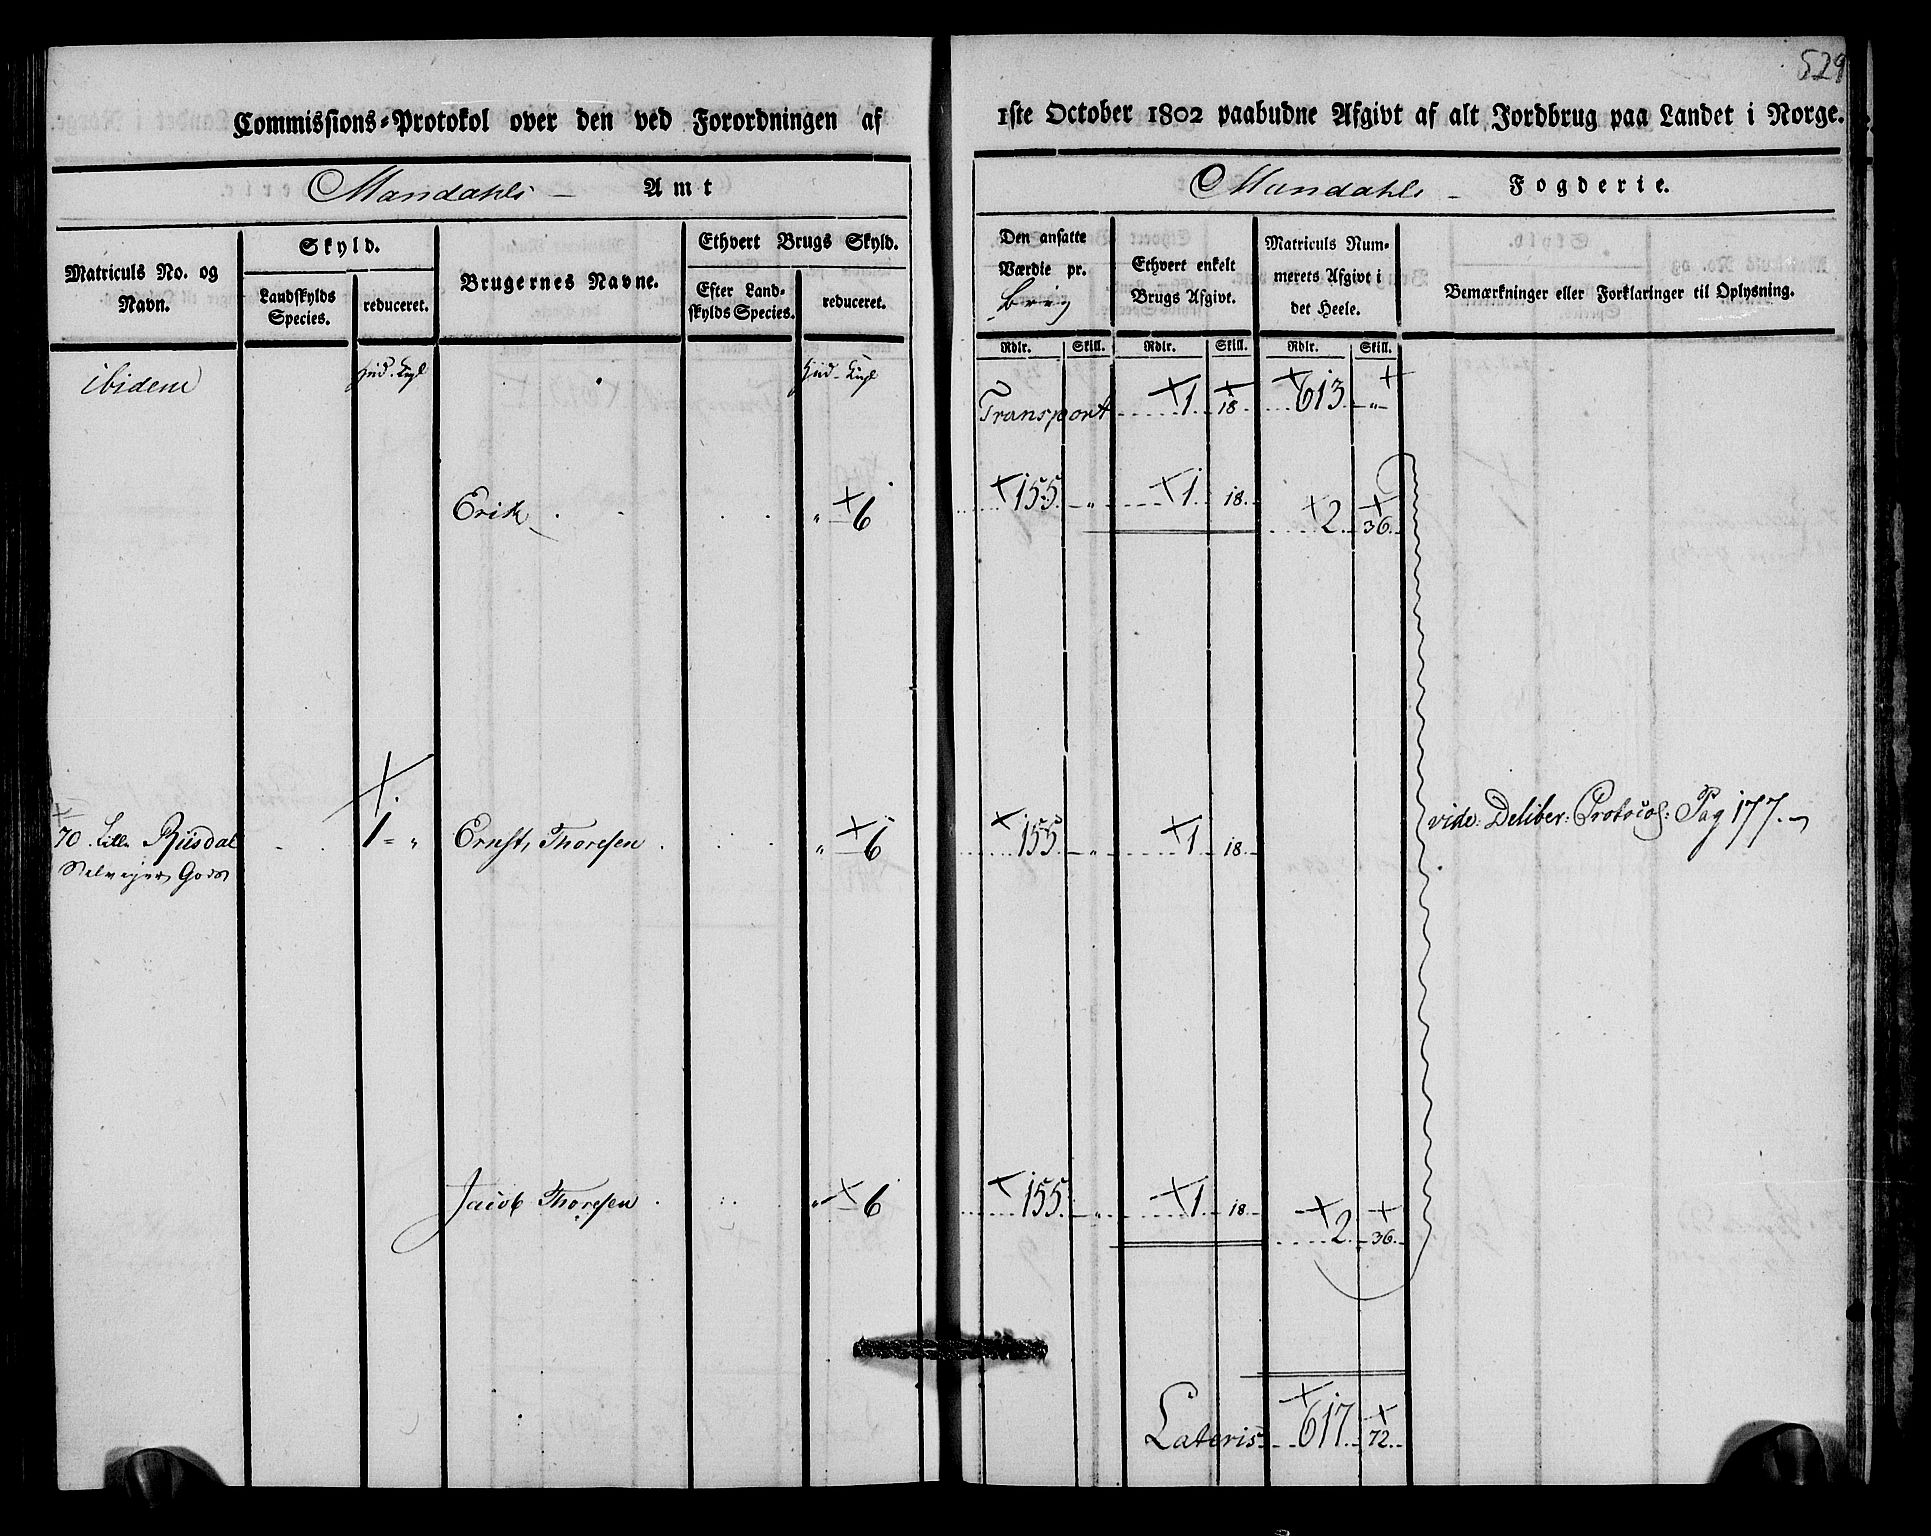 529
Commissions-Protokol over den ved Forordningen af 1ste October 1802 paabudne Afgivt af alt Jordbrug paa Landet i Norge.
Mandahls Amt
Mandahls Fogderie.
Matriculs No. og Navn.
Skyld.
Landskylds Species.
reduceret.
Brugernes Navne.
Ethvert Brugs Skyld.
Efter Landskylds Species.
reduceret.
Den ansatte Værdie pr. Brug
Ethvert enkelt Brugs Afgivt.
Matriculs Nummerets Afgivt i det Heele.
Bemærkninger eller Forklaringer til Oplysning.
Rdlr. Skill. Rdlr. Skill. Rdlr. Skill.
ibidem
Transport 1 18 613 "
Erik " 6 155 " 1 18 2 36
70 Lille Riisdal 1 - " Ernst Thoresen " 6 155 " 1 18 vide: Deliber: Protocol: Pag 177.
Selvejer Gods
Jacob Thoresen " 6 155 " 1 18 2 36
Lateris 617 72